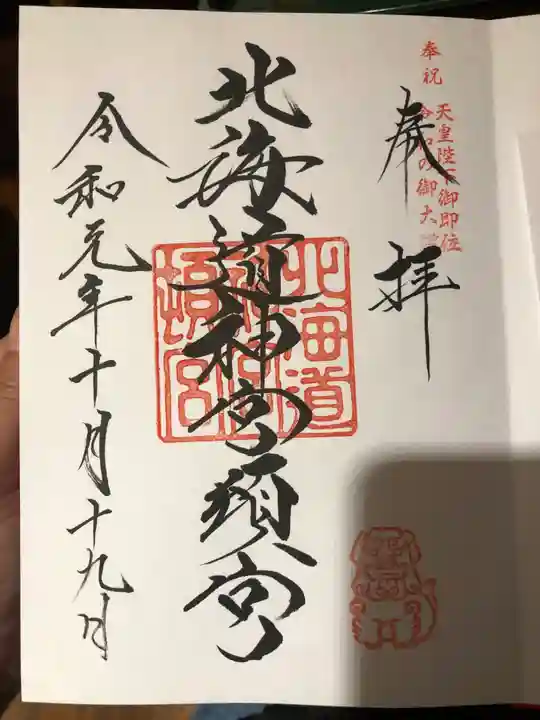 奉祝
天皇陛下御即位
令和の御大
奉拝
北海道神宮頓宮
北海道神宮頓宮
令和元年十月十九日